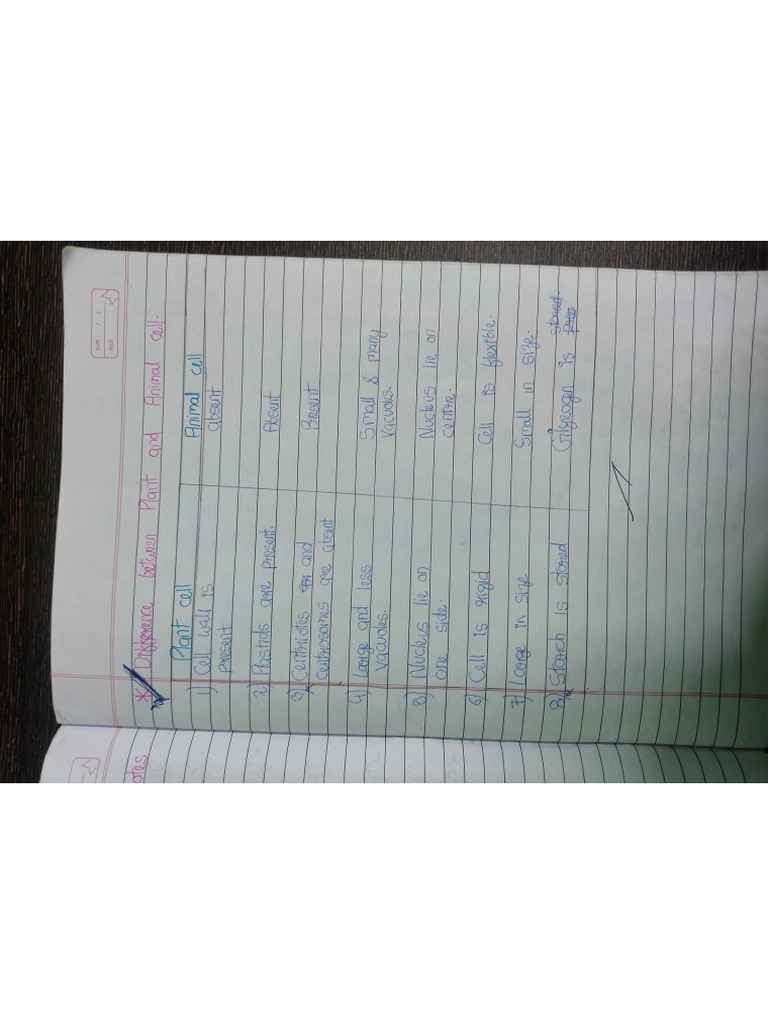 * Difference between Plant and Animal cell.
Plant cell Animal cell
1) Cell wall is absent
present
2) Plastids are present. Absent
3) Centriotes and Present
Centrosomes are absent
4) Large and less Small & many
vacuoles. Vacuoles.
5) Nucleus lie on Nucleus lie on
one side. centre.
6) Cell is rigid Cell is flexible.
7) Large in size Small in size.
8) Starch is stored Glycogen is stored
otes